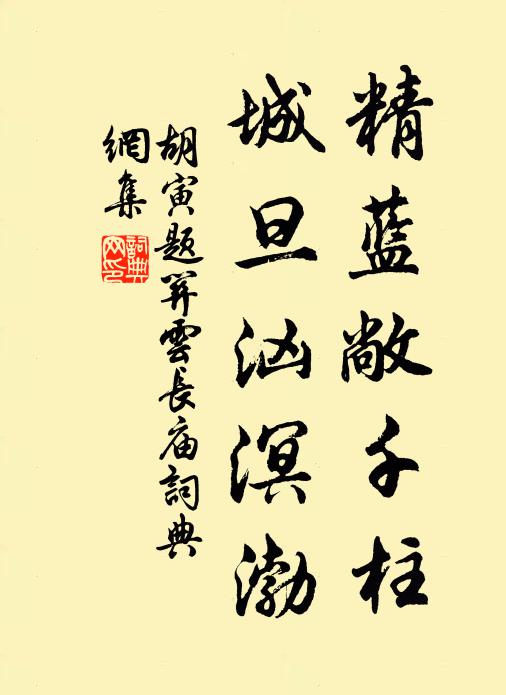 精蓝敞千柱
城旦汹溟渤
胡寅题关云长庙词典
网集
词典网印